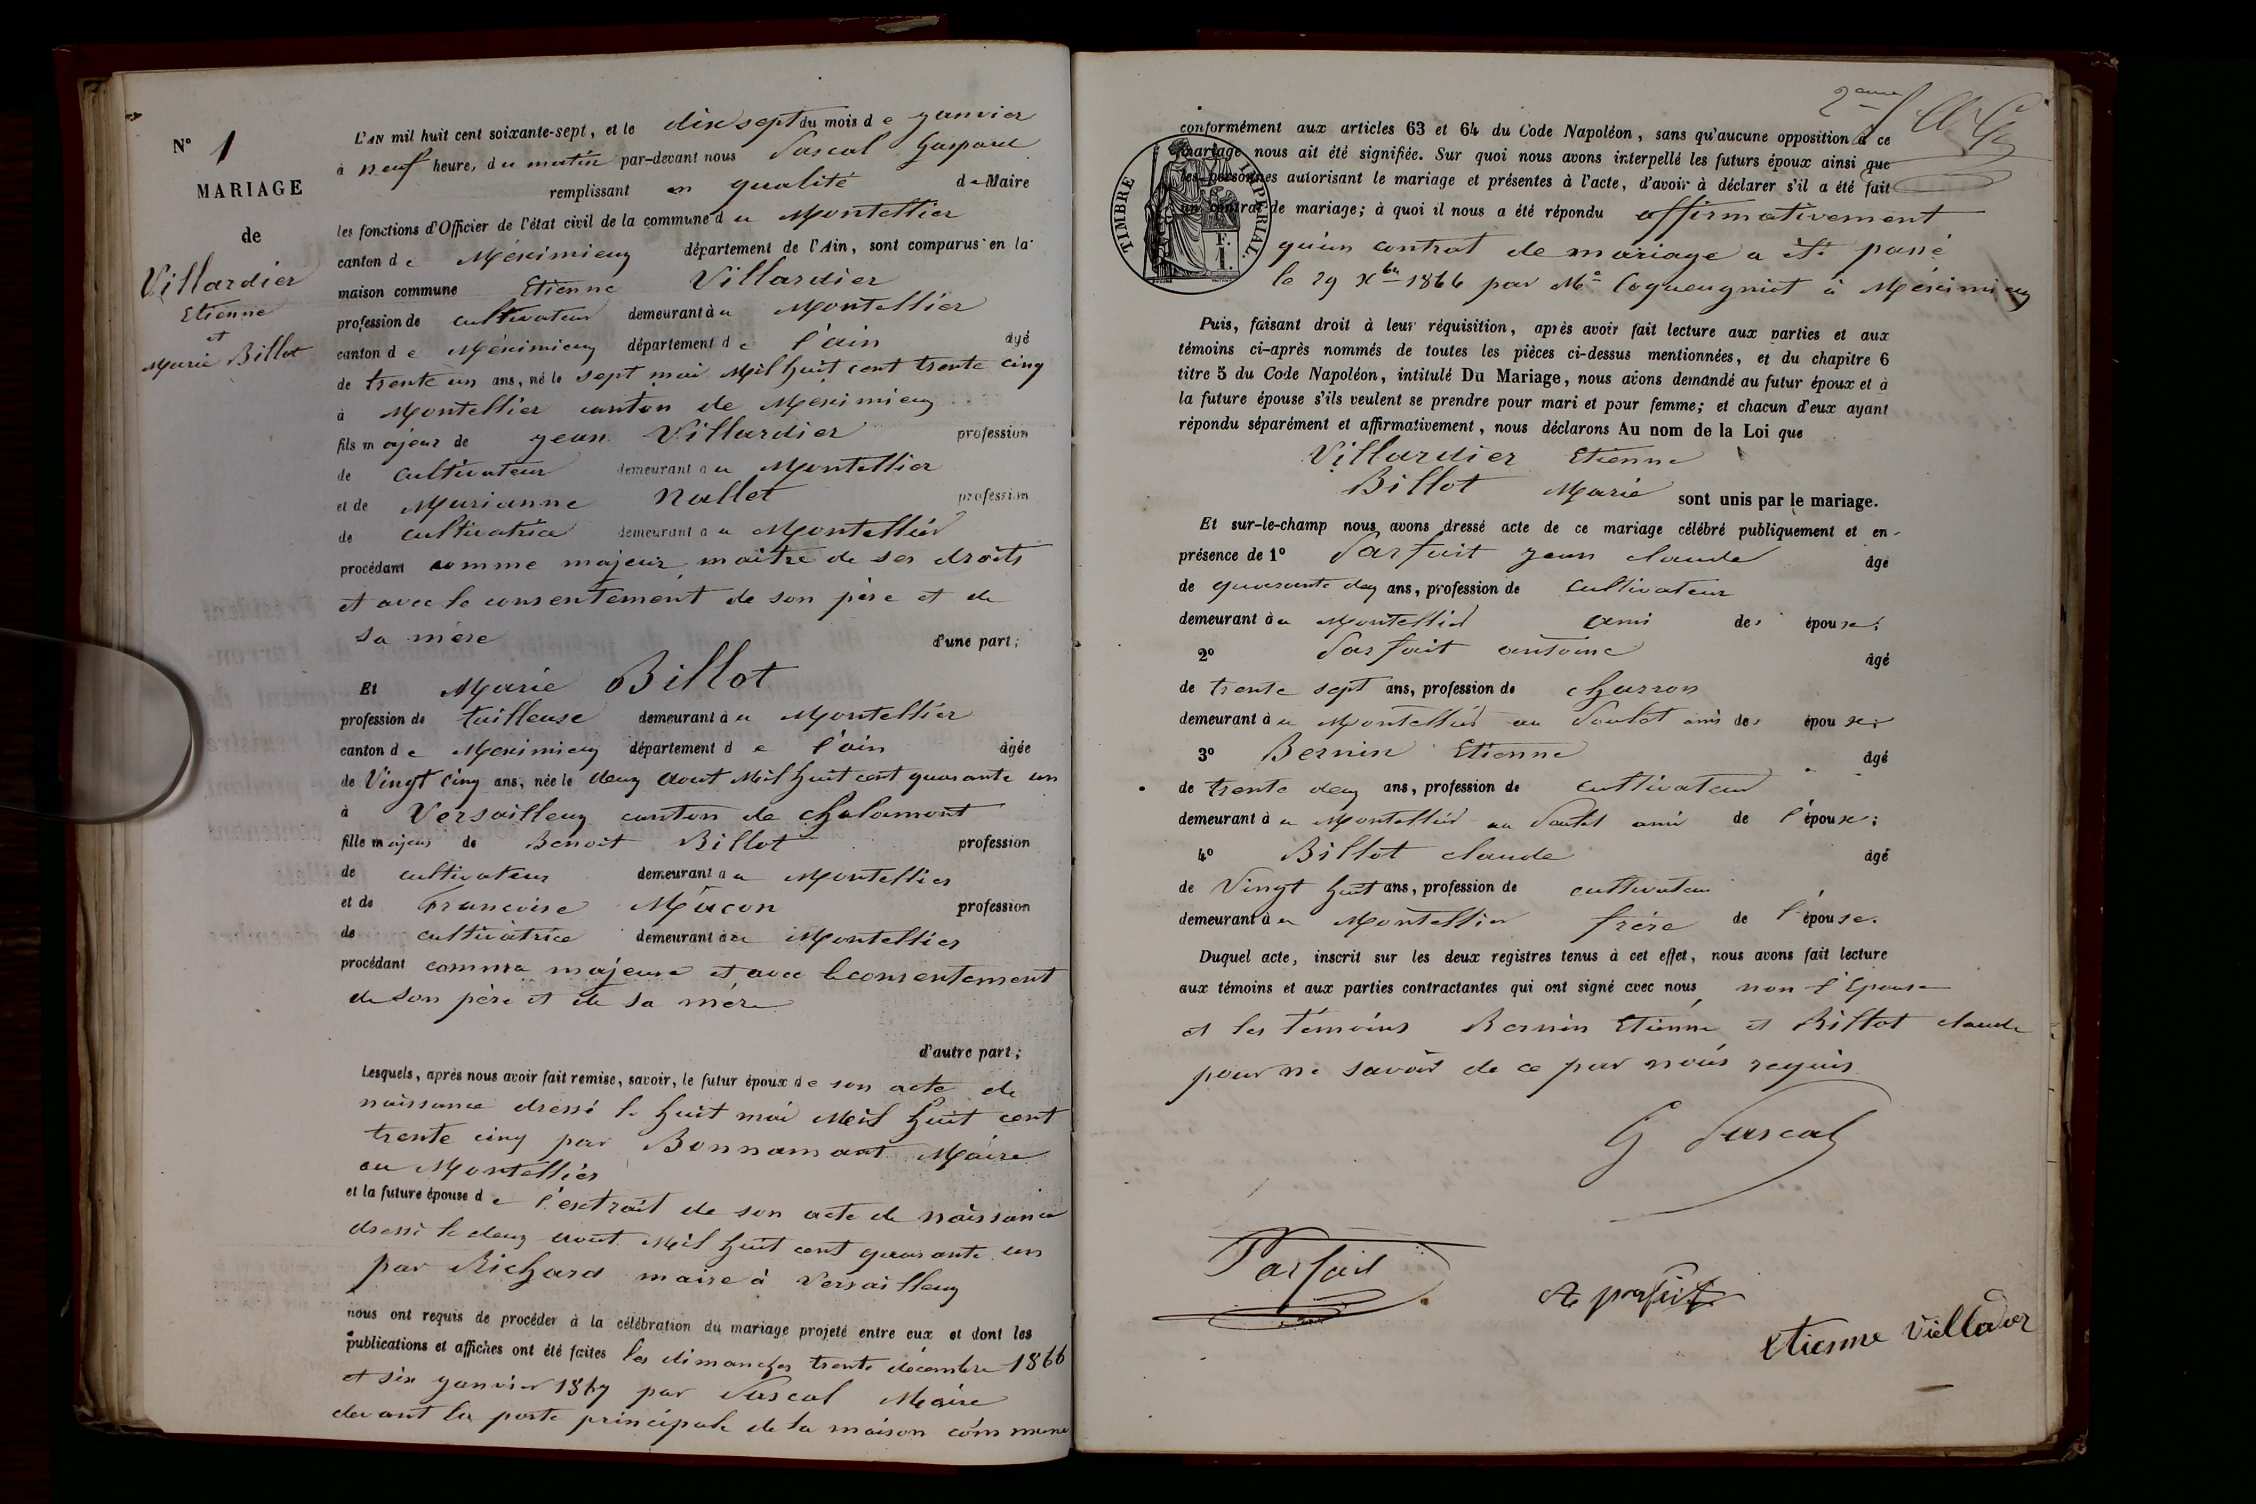 N° 1
MARIAGE
de
Villardier
Etienne
et
Marie Billot
L'AN mil huit cent soixante-sept, et le dix sept du mois de janvier
à neuf heure, du matin par-devant nous Pascal Gaspard
remplissant en qualité de Maire
les fonctions d'Officier de l'état civil de la commune du Montellier
canton de Méximieux département de l'Ain, sont comparus en la
maison commune Etienne Villardier
profession de cultivateur demeurant à u Montellier
canton de Méximieux département de l'ain âgé
de trente un ans, né le sept mai Mil huit cent trente cinq
à Montellier canton de Meximieux
fils majeur de jean Villardier profession
de cultivateur demeurant au Montellier
et de Marianne Nallet profession
de cultivatrice demeurant au Montellier
procédant comme majeur maître de ses droits
et avec le consentement de son père et de
sa mère d'une part;
Et Marie Billot
profession de tailleuse demeurant à u Montellier
canton de Meximieux département de l'ain âgée
de Vingt cinq ans, née le deux aout Mil huit cent quarante un
à Versailleux canton de chalamont
fille majeur de Benoit Billot profession
de cultivateur demeurant au Montellier
et de Francoise Mâcon profession
de cultivatrice demeurant à u Montellier
procédant comme majeure et avec le consentement
de son père et de sa mère
d'autre part;
Lesquels, après nous avoir fait remise, savoir, le futur époux de son acte de
naissance dressé le huit mai Mil huit cent
trente cinq par Bonnamant Maire
au Montellier
et la future épouse de l'extrait de son acte de naissance
dressé le deux aout Mil huit cent quarante un
par Richard maire à Versailleux
nous ont requis de procéder à la célébration du mariage projeté entre eux et dont les
publications et affiches ont été faites les dimanches trente décembre 1866
et six janvier 1867 par Pascal Maire
devant la porte principale de la maison commune
2eme
conformément aux articles 63 et 64 du Code Napoléon, sans qu'aucune opposition à ce
mariage nous ait été signifiée. Sur quoi nous avons interpellé les futurs époux ainsi que
les personnes autorisant le mariage et présentes à l'acte, d'avoir à déclarer s'il a été fait
un contrat de mariage; à quoi il nous a été répondu affirmativement
TIMBRE IMPÉRIAL.
1 F.
qu'un contrat de mariage a été passé
le 29 Xbre 1866 par Me Coqueugniot à Méximieux
Puis, faisant droit à leur réquisition, après avoir fait lecture aux parties et aux
témoins ci-après nommés de toutes les pièces ci-dessus mentionnées, et du chapitre 6
titre 5 du Code Napoléon, intitulé Du Mariage, nous avons demandé au futur époux et à
la future épouse s'ils veulent se prendre pour mari et pour femme; et chacun d'eux ayant
répondu séparément et affirmativement, nous déclarons Au nom de la Loi que
Villardier Etienne
Billot Marie sont unis par le mariage.
Et sur-le-champ nous avons dressé acte de ce mariage célébré publiquement et en
présence de 1° Parfait jean claude âgé
de quarante deux ans, profession de cultivateur
demeurant à u Montellier ami des épouse;
2° Parfait antoine âgé
de trente sept ans, profession de charron
demeurant à u Montellier au ami des époux
3° Bernin Etienne âgé
de trente deux ans, profession de cultivateur
demeurant à u Montellier au ami de l'épouse;
4° Billot claude âgé
de Vingt huit ans, profession de cultivateur
demeurant à u Montellier frère de l'épouse.
Duquel acte, inscrit sur les deux registres tenus à cet effet, nous avons fait lecture
aux témoins et aux parties contractantes qui ont signé avec nous, non l'Epouse
et les témoins Bernin Etienne et Billot claude
pour ne savoir de ce par nous requis
G Pascal
Parfait
A parfait
Etienne Villadier